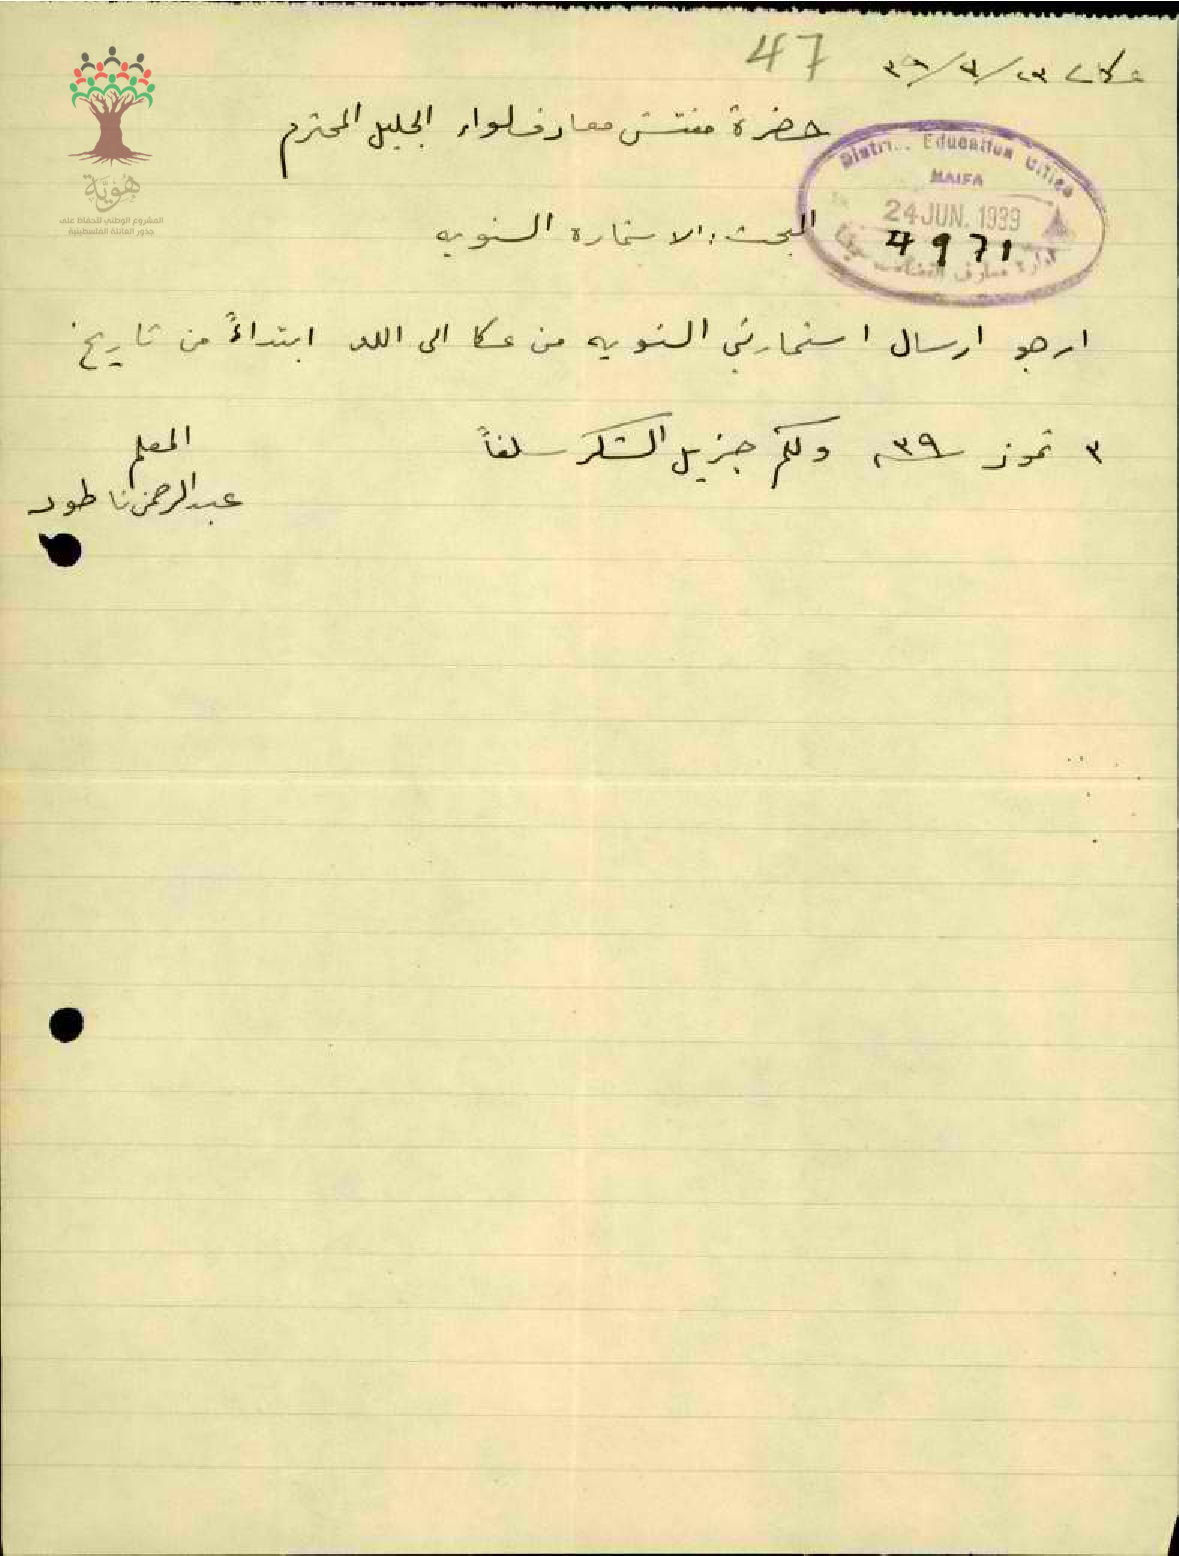 47
عكا في ٢٣/٦/٣٩
حضرة مفتش معارف لواء الجليل المحترم
District Education Office
HAIFA
24 JUN. 1939
4971
البحث: الاستمارة السنويه
ارجو ارسال استمارتي السنويه من عكا الى اللد ابتداءً من تاريخ
٣ تموز سنة ٣٩، ولكم جزيل الشكر سلفاً
المعلم
عبد الرحمن ناطور
هُوِيَّة
المشروع الوطني للحفاظ على
جذور العائلة الفلسطينية